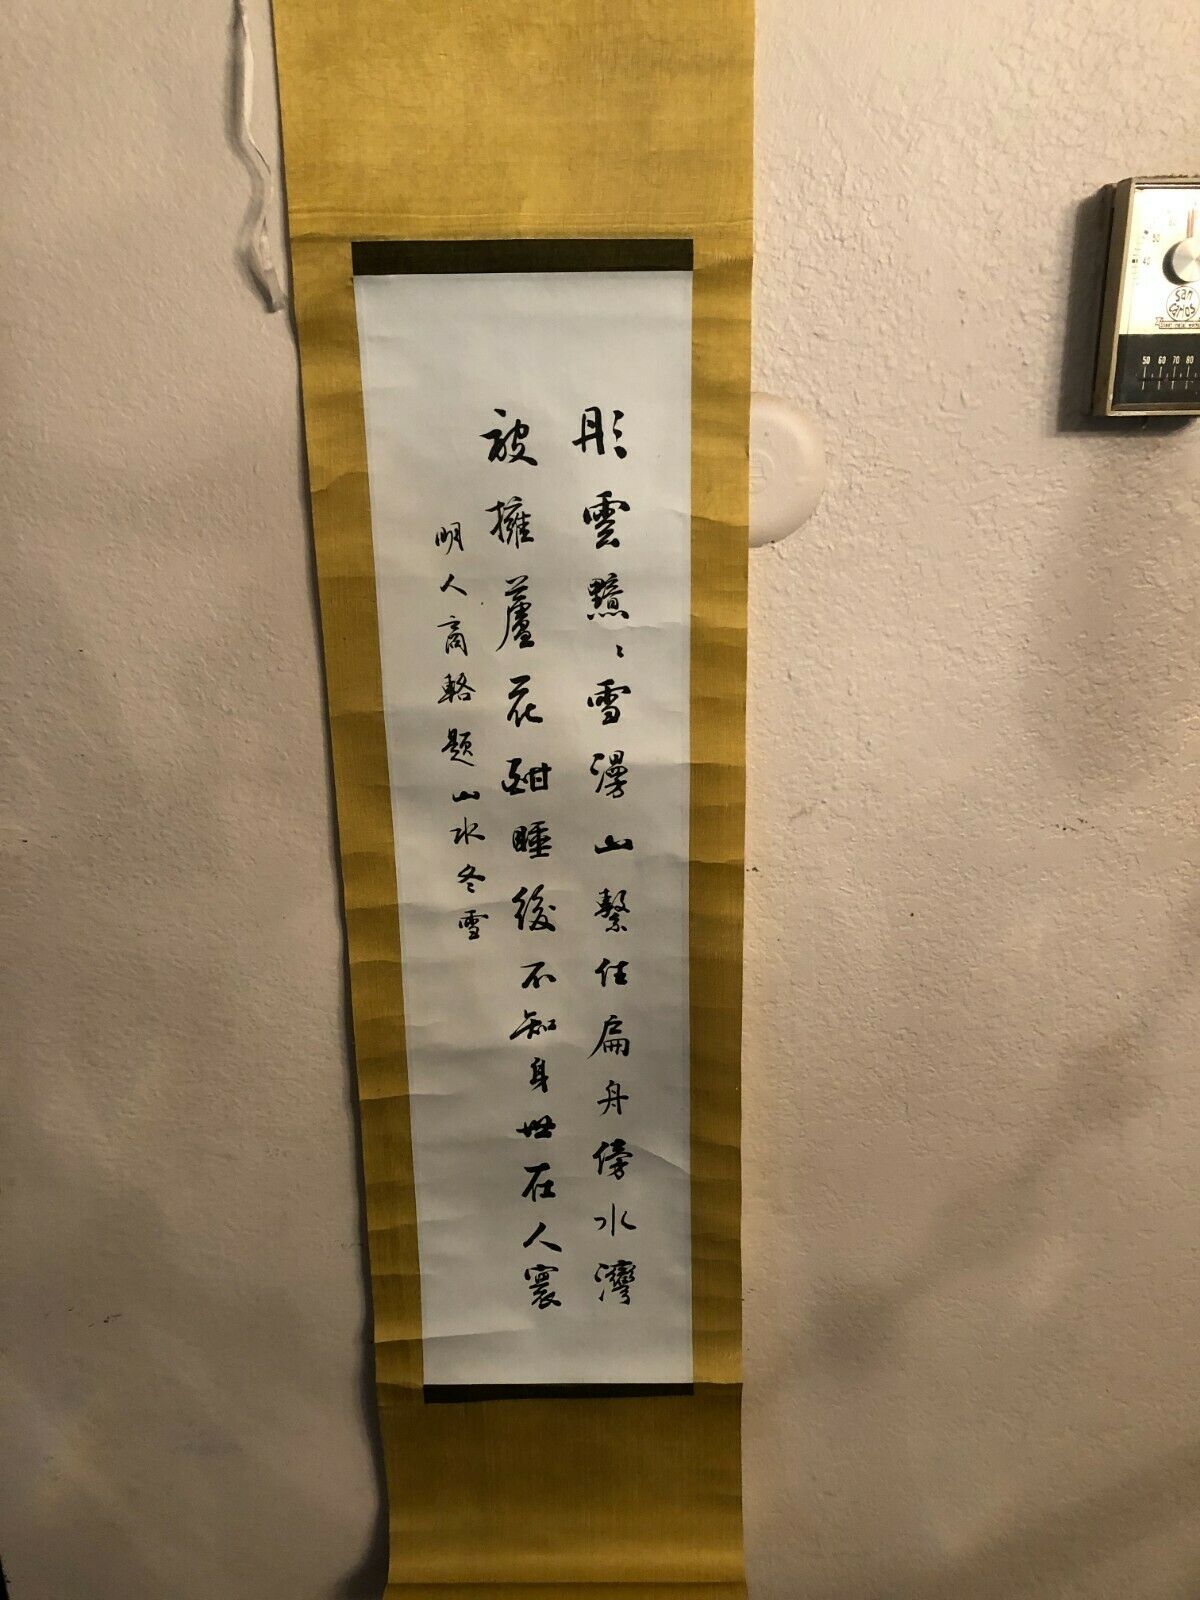 彤雲黯、雪漫山繫住扁舟傍水灣
被擁蘆花酣睡後不知身世在人寰
明人商輅題山水冬雪
60
50
40
san
carlos
50 60 70 80